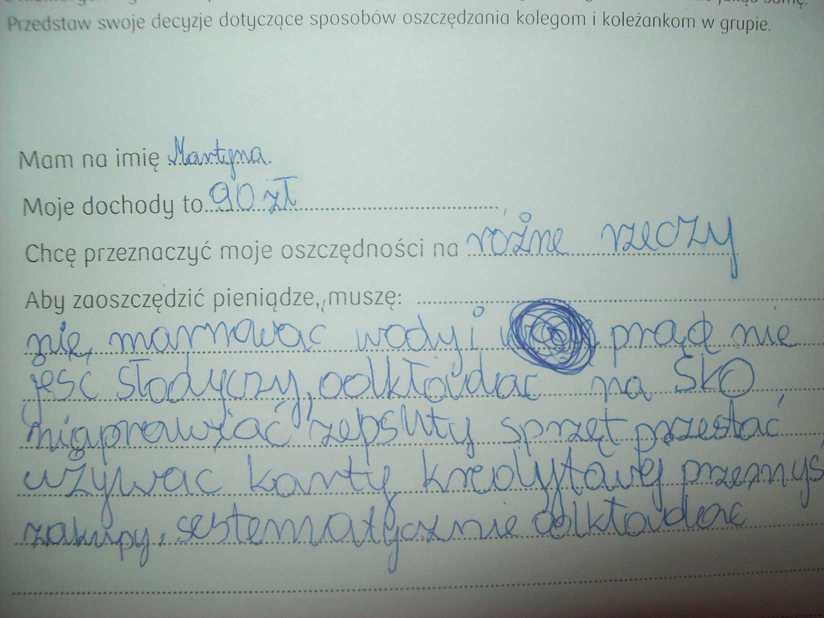 Przedstaw swoje decyzje dotyczące sposobów oszczędzania kolegom i koleżankom w grupie.
Mam na imię Martyna.
Moje dochody to 90 zł
Chcę przeznaczyć moje oszczędności na rożne rzeczy
Aby zaoszczędzić pieniądze, muszę:
nie marnować wody i prąd nie
jeść słodyczy, odkładać na SKO
naprawiać zepsuty sprzęt przestać
używać karty kredytowej przemyś
zakupy, sestematycznie odkładać